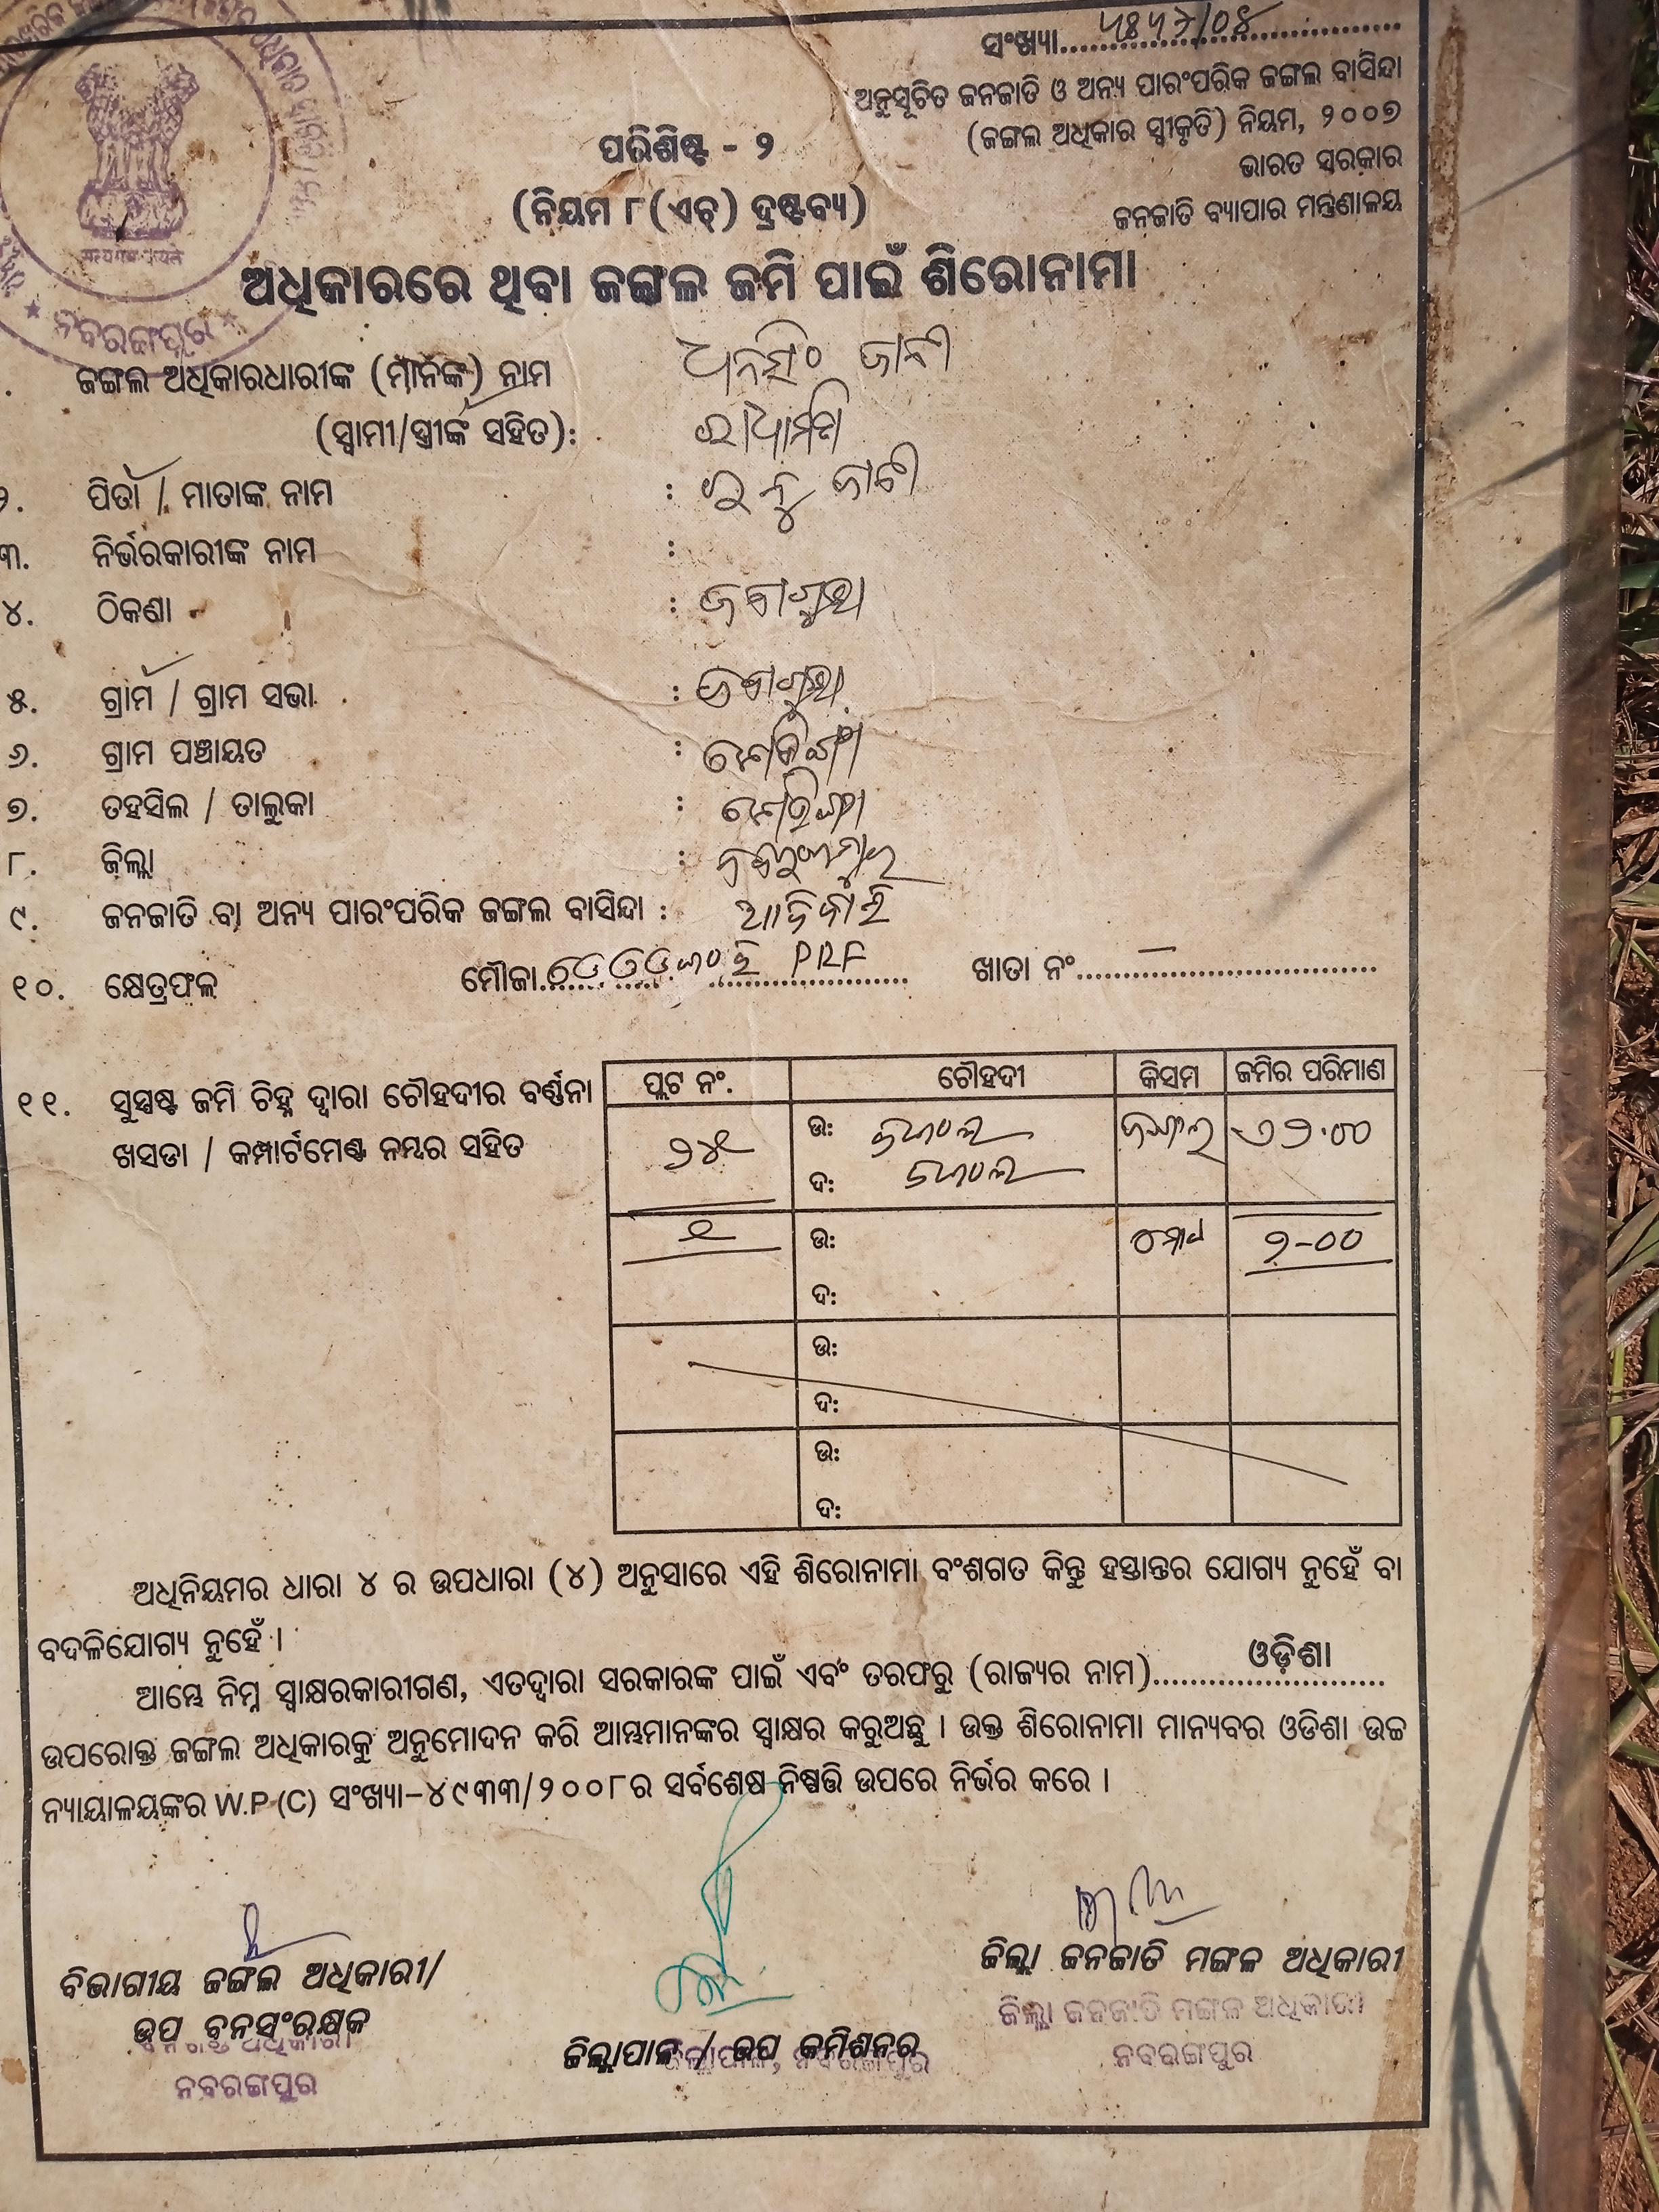 ସଂଖ୍ୟା
ଅନୁସୂଚିତ ଜନଜାତି ଓ ଅନ୍ୟ ପାରଂପରିକ ଜଙ୍ଗଲ ବାସିନ୍ଦା
(ଜଙ୍ଗଲ ଅଧିକାର ସ୍ୱୀକୃତି) ନିୟମ, ୨୦୦୭
ଭାରତ ସରକାର
ଜନଜାତି ବ୍ୟାପାର ମନ୍ତ୍ରଣାଳୟ
ପରିଶିଷ୍ଟ - ୨
(ନିୟମ ୮(ଏଚ୍) ଦ୍ରଷ୍ଟବ୍ୟ)
ଅଧିକାରରେ ଥିବା ଜଙ୍ଗଲ ଜମି ପାଇଁ ଶିରୋନାମା
ନବରଙ୍ଗପୁର
ଜଙ୍ଗଲ ଅଧିକାରଧାରୀଙ୍କ (ମାନଙ୍କ) ନାମ ଧନସିଂ ଜାନୀ
(ସ୍ୱାମୀ/ସ୍ତ୍ରୀଙ୍କ ସହିତ):
୨. ପିତା / ମାତାଙ୍କ ନାମ : ଜାନୀ
୩. ନିର୍ଭରକାରୀଙ୍କ ନାମ :
୪. ଠିକଣା :
୫. ଗ୍ରାମ / ଗ୍ରାମ ସଭା :
୬. ଗ୍ରାମ ପଞ୍ଚାୟତ :
୭. ତହସିଲ / ତାଲୁକା :
୮. ଜିଲ୍ଲା : ନବରଙ୍ଗପୁର
୯. ଜନଜାତି ବା ଅନ୍ୟ ପାରଂପରିକ ଜଙ୍ଗଲ ବାସିନ୍ଦା : ଆଦିବାସୀ
୧୦. କ୍ଷେତ୍ରଫଳ ମୌଜା PRF ଖାତା ନଂ –
୧୧. ସୁସ୍ପଷ୍ଟ ଜମି ଚିହ୍ନ ଦ୍ୱାରା ଚୌହଦୀର ବର୍ଣ୍ଣନା
ଖସଡା / କମ୍ପାର୍ଟମେଣ୍ଟ ନମ୍ବର ସହିତ
ପ୍ଲଟ ନଂ. ଚୌହଦୀ କିସମ ଜମିର ପରିମାଣ
ଉ: ଜଙ୍ଗଲ
ଦ:
୧ ଉ: ମୋଟ ୨-୦୦
ଦ:
ଉ:
ଦ:
ଉ:
ଦ:
ଅଧିନିୟମର ଧାରା ୪ ର ଉପଧାରା (୪) ଅନୁସାରେ ଏହି ଶିରୋନାମା ବଂଶଗତ କିନ୍ତୁ ହସ୍ତାନ୍ତର ଯୋଗ୍ୟ ନୁହେଁ ବା
ବଦଳିଯୋଗ୍ୟ ନୁହେଁ ।
ଆମ୍ଭେ ନିମ୍ନ ସ୍ୱାକ୍ଷରକାରୀଗଣ, ଏତଦ୍ୱାରା ସରକାରଙ୍କ ପାଇଁ ଏବଂ ତରଫରୁ (ରାଜ୍ୟର ନାମ) ଓଡ଼ିଶା
ଉପରୋକ୍ତ ଜଙ୍ଗଲ ଅଧିକାରକୁ ଅନୁମୋଦନ କରି ଆମ୍ଭମାନଙ୍କର ସ୍ୱାକ୍ଷର କରୁଅଛୁ । ଉକ୍ତ ଶିରୋନାମା ମାନ୍ୟବର ଓଡିଶା ଉଚ୍ଚ
ନ୍ୟାୟାଳୟଙ୍କର W.P.(C) ସଂଖ୍ୟା-୪୯୩୩/୨୦୦୮ର ସର୍ବଶେଷ ନିଷ୍ପତ୍ତି ଉପରେ ନିର୍ଭର କରେ ।
ବିଭାଗୀୟ ଜଙ୍ଗଲ ଅଧିକାରୀ/
ଉପ ବନସଂରକ୍ଷକ
ନବରଙ୍ଗପୁର
ଜିଲ୍ଲାପାଳ / ଉପ କମିଶନର
ଜିଲ୍ଲାପାଳ, ନବରଙ୍ଗପୁର
ଜିଲ୍ଲା ଜନଜାତି ମଙ୍ଗଳ ଅଧିକାରୀ
ଜିଲ୍ଲା ଜନଜାତି ମଙ୍ଗଳ ଅଧିକାରୀ
ନବରଙ୍ଗପୁର